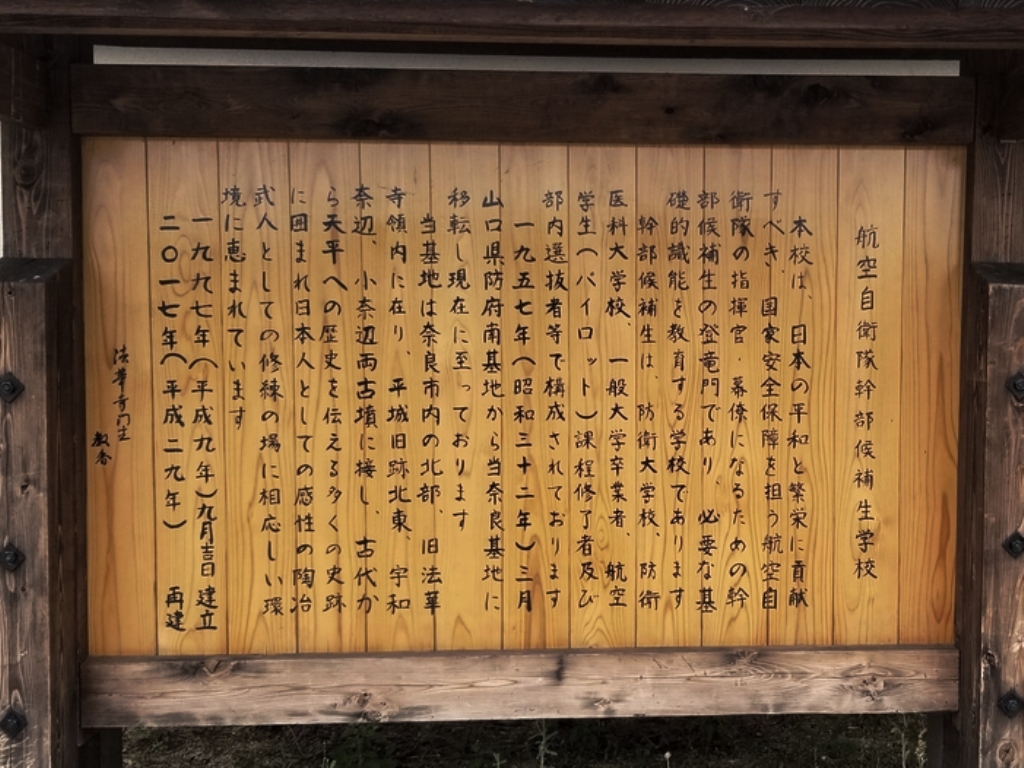 航空自衛隊幹部候補生学校
本校は、日本の平和と繁栄に貢献
すべき、国家安全保障を担う航空自
衛隊の指揮官・幕僚になるための幹
部候補生の登竜門であり、必要な基
礎的識能を教育する学校であります
幹部候補生は、防衛大学校、防衛
医科大学校、一般大学卒業者、航空
学生(パイロット)課程修了者及び
部内選抜者等で構成されております
一九五七年(昭和三十二年)三月
山口県防府南基地から当奈良基地に
移転し現在に至っております
当基地は奈良市内の北部、旧法華
寺領内に在り、平城旧跡北東、宇和
奈辺、小奈辺両古墳に接し、古代か
ら天平への歴史を伝える多くの史跡
に囲まれ日本人としての感性の陶冶
武人としての修練の場に相応しい環
境に恵まれています
一九九七年(平成九年)九月吉日 建立
二〇一七年(平成二九年) 再建
法華寺門主